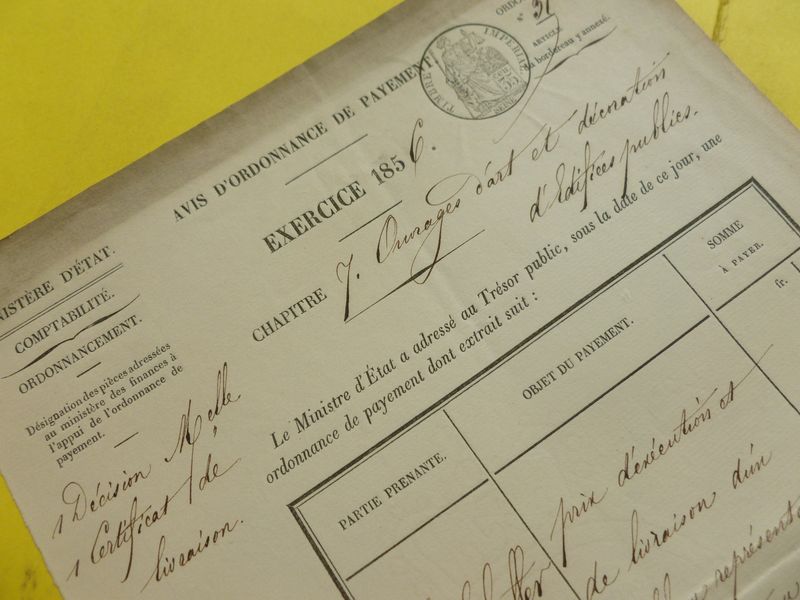 ORDO
N° 31
ARTICLE
du bordereau y annexé.
TIMBRE IMPERIAL
35
AVIS D'ORDONNANCE DE PAYEMENT
EXERCICE 1856.
CHAPITRE 7. Ouvrages d'art et décoration
d'Edifices publics.
NISTÈRE D'ÉTAT.
COMPTABILITÉ.
ORDONNANCEMENT.
Désignation des pièces adressées
au ministère des finances à
l'appui de l'ordonnance de
payement.
1 Décision Melle
1 Certificat de
livraison.
Le Ministre d'État a adressé au Trésor public, sous la date de ce jour, une
ordonnance de payement dont extrait suit :
PARTIE PRENANTE.
OBJET DU PAYEMENT.
SOMME
À PAYER.
fr.
prix d'exécution et
de livraison d'un
représent